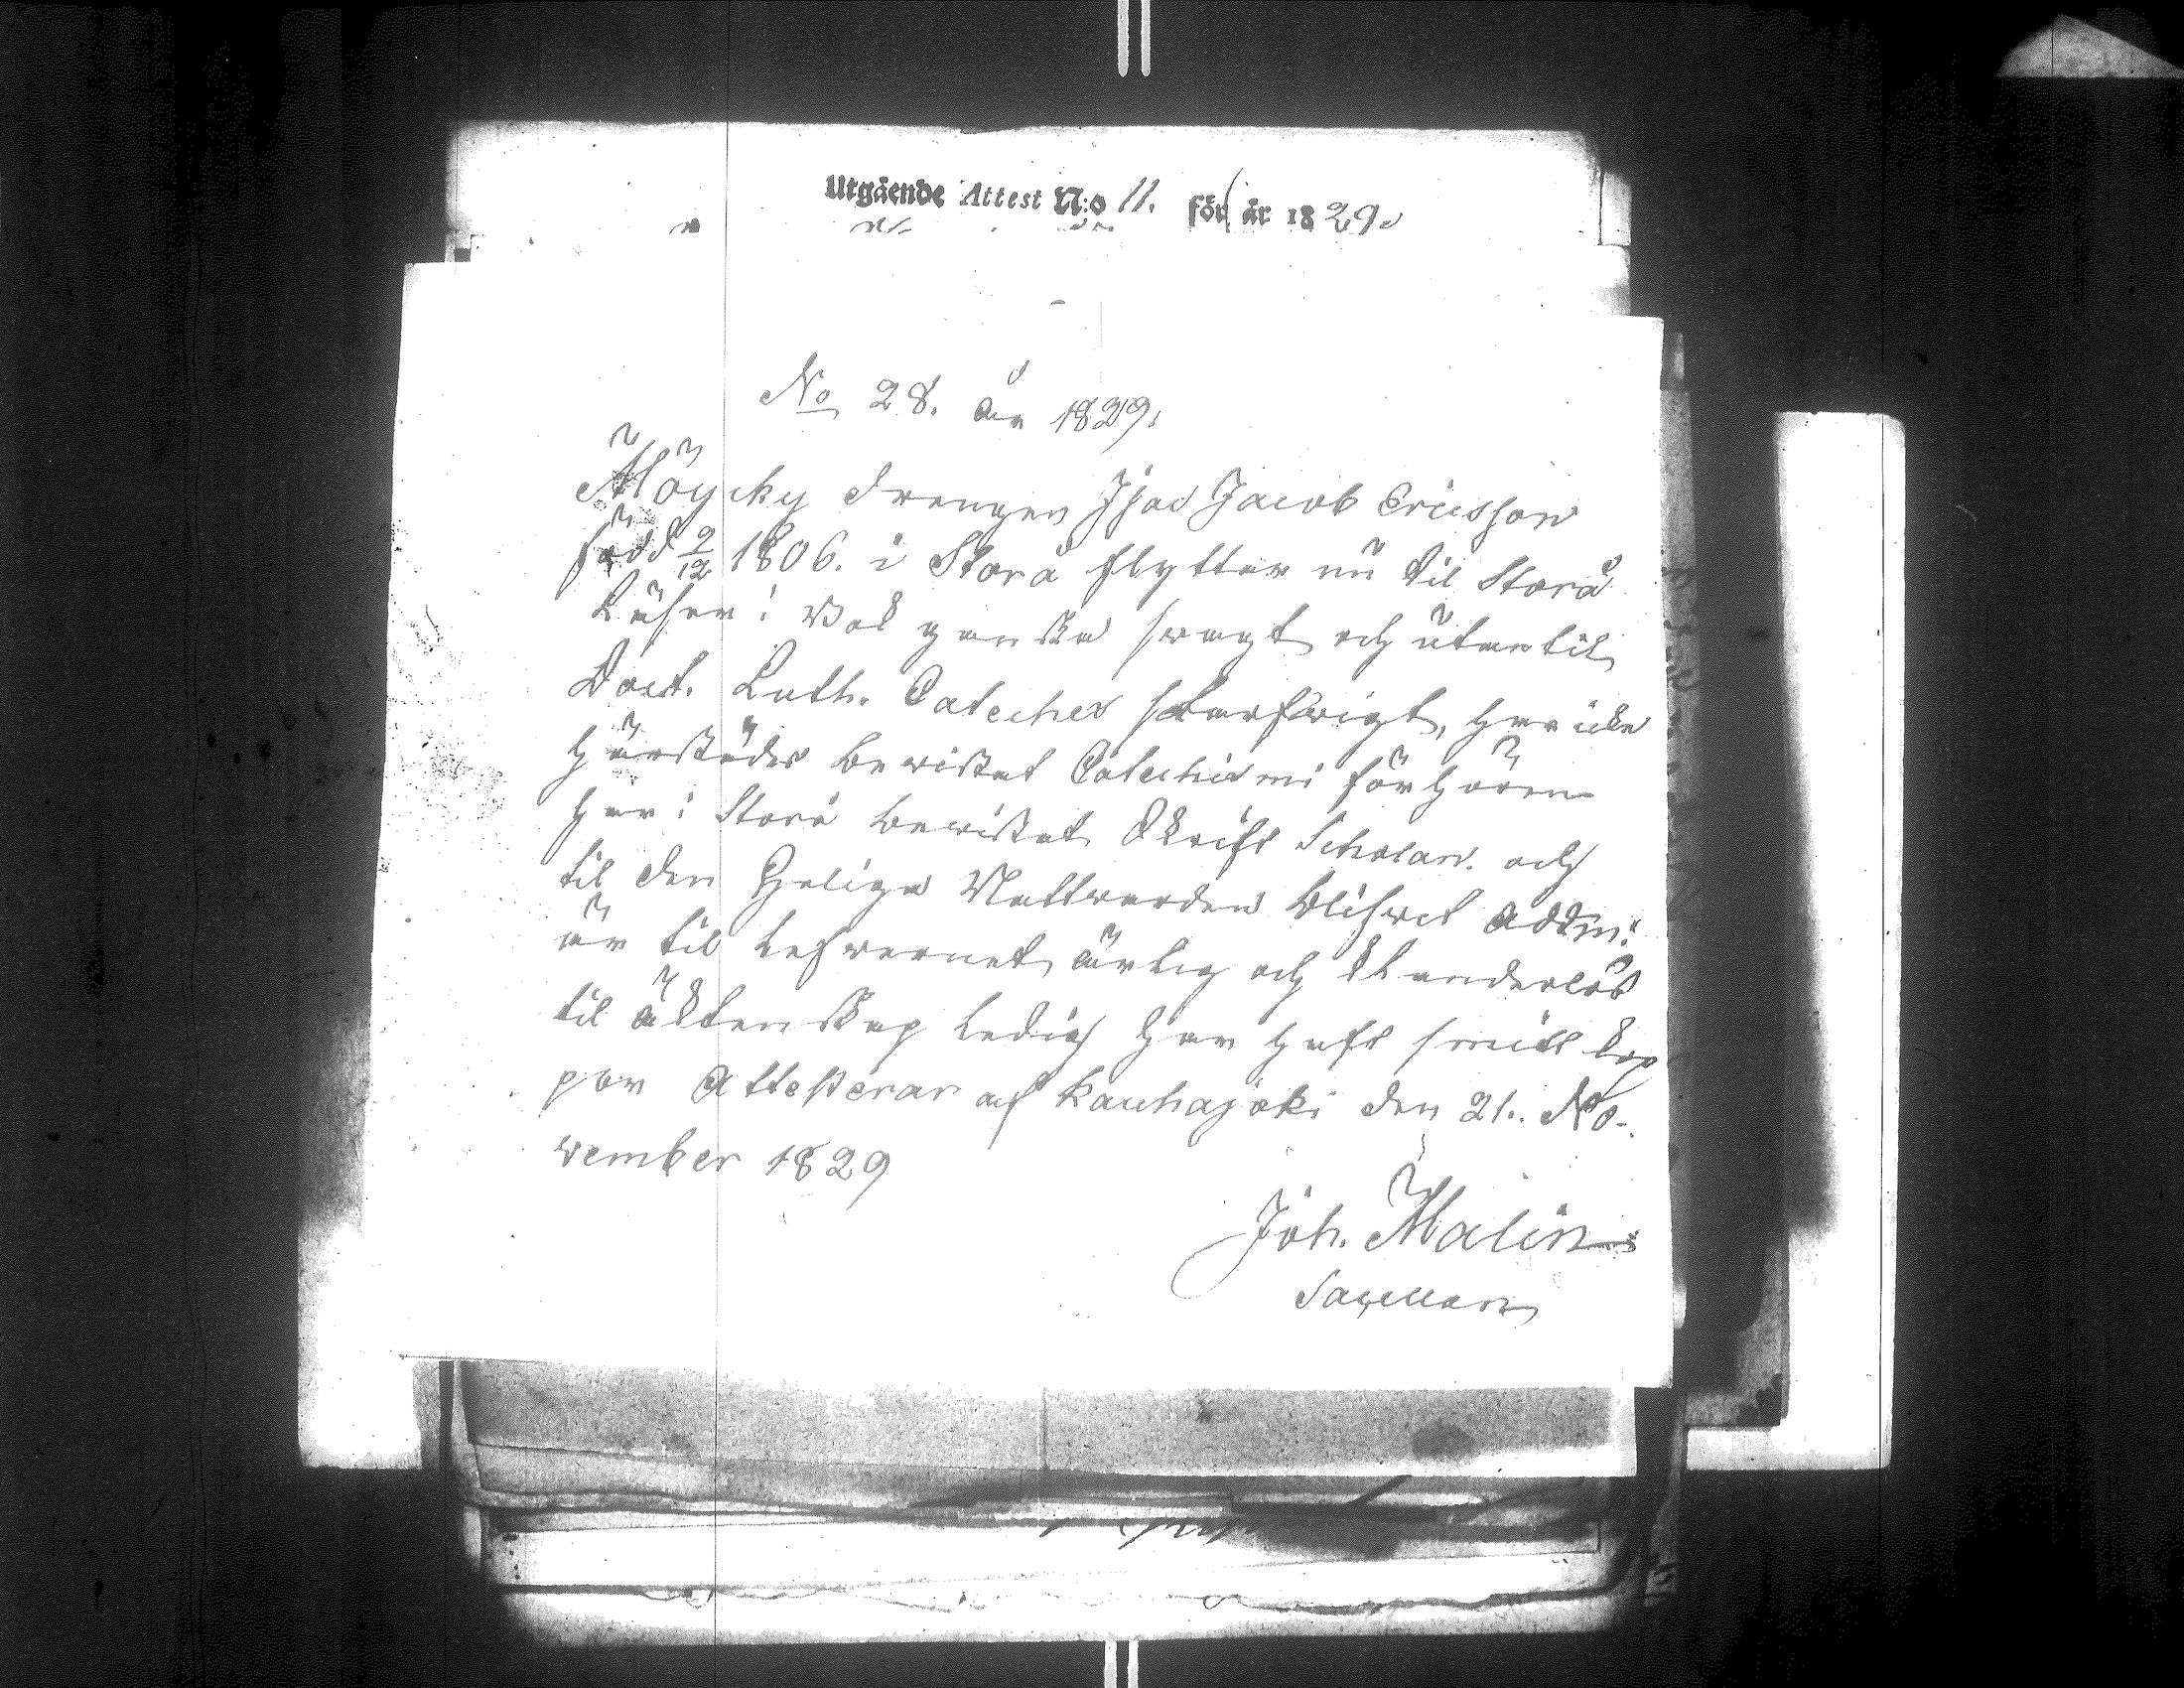 Utgående Attest N:o 11. för år 1829.
No 28. år 1829.
Möycky drengen Isac Jacob Ericsson
född 2/12 1806. i Storå flyttar nu til Storå
Läser i Bok ganska swagt och utantil
Doct. Luth. Cateches, har icke
härstädes bewistat Catechismi förhören
har i Storå bewistat Skrift Scholan. och
til den Heliga Nattwarden blifwit addm:
är til lefwernet ärlig och klanderlös
til äktenskap ledig har haft smitt kop
por Attesterar af Kauhajoki den 21. No-
vember 1829
Joh. Malin
Sacellan